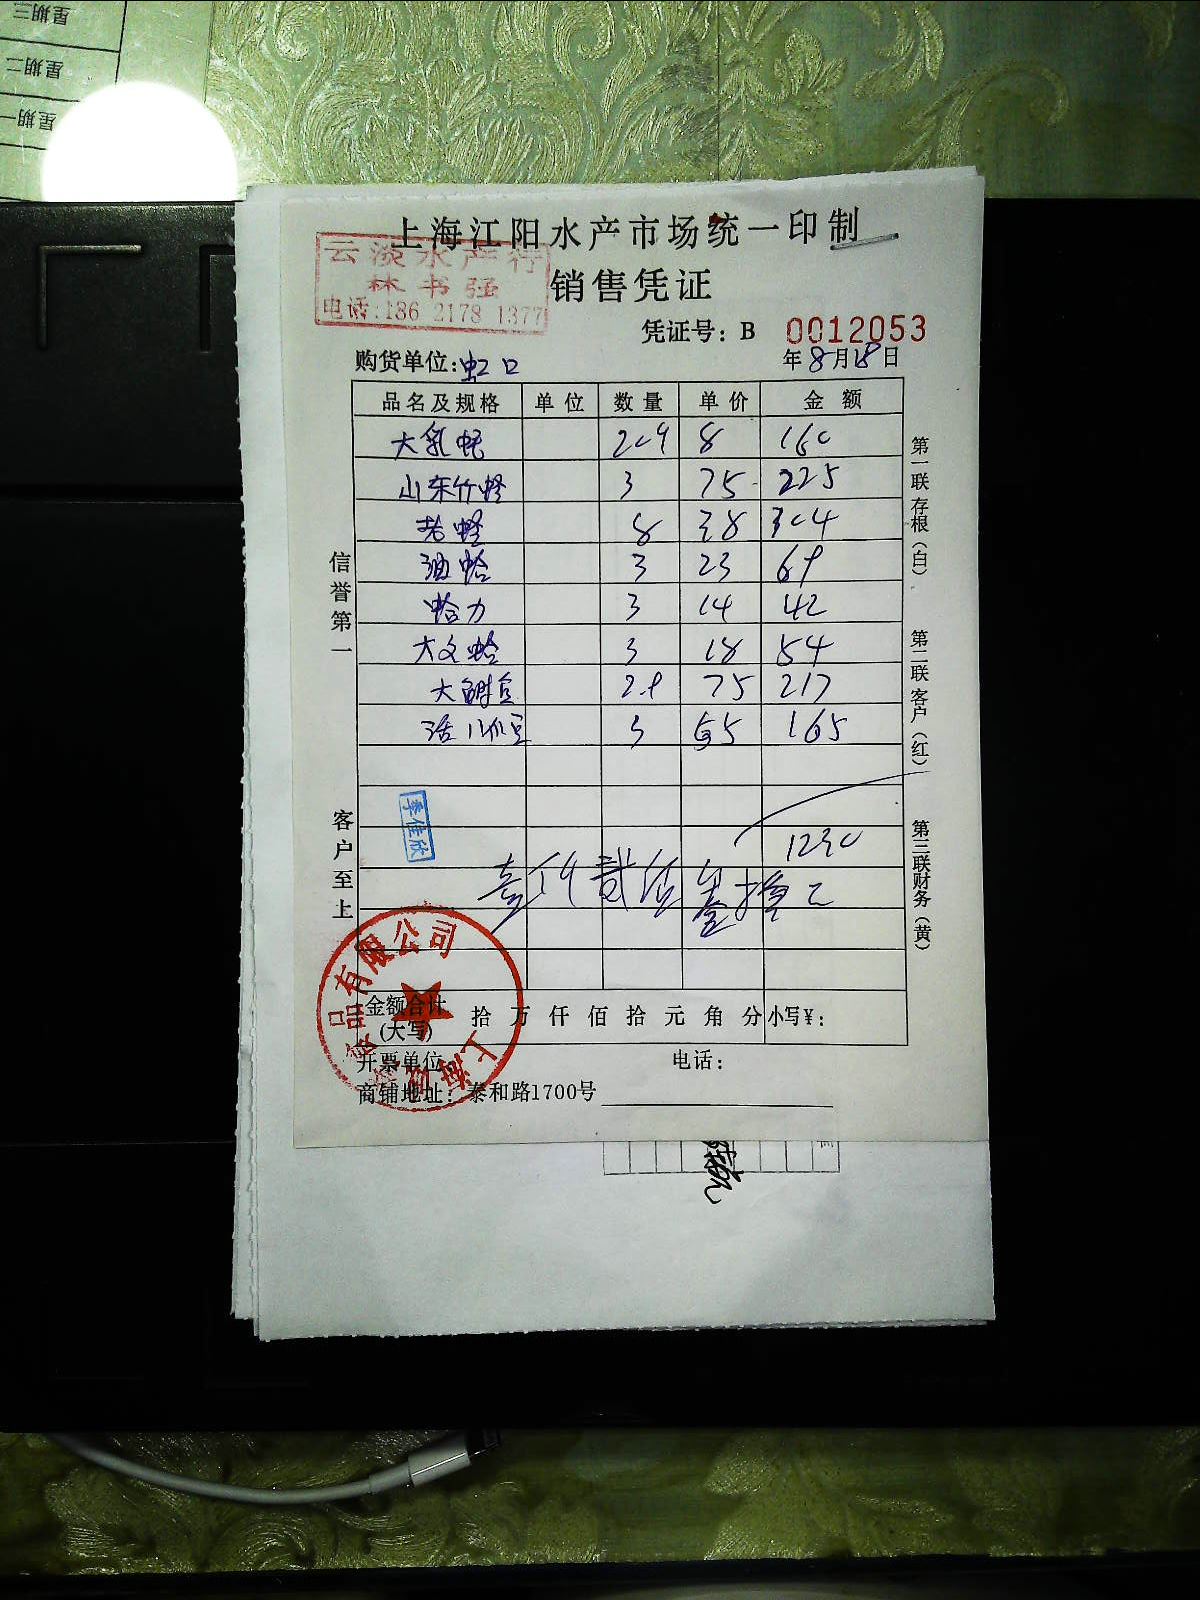 星期三
星期二
星期一
上海江阳水产市场统一印制
云淡水产行
林书强
电话:186 2178 1377
销售凭证
凭证号: B 0012053
购货单位:虹口 年8月18日
品名及规格 单位 数量 单价 金额
大乳蚝 20只 8 160
山东竹蛏 3 75 225
老蛏 8 38 304
油蛤 3 23 69
蛤力 3 14 42
大文蛤 3 18 54
2.9 75 217
3 55 165
1230
壹仟贰佰叁拾元
季佳欣
信誉第一
客户至上
第一联存根(白)
第二联客户(红)
第三联财务(黄)
金额合计(大写) 拾万仟佰拾元角分 小写¥:
开票单位 电话:
商铺地址: 泰和路1700号
品有限公司
上海